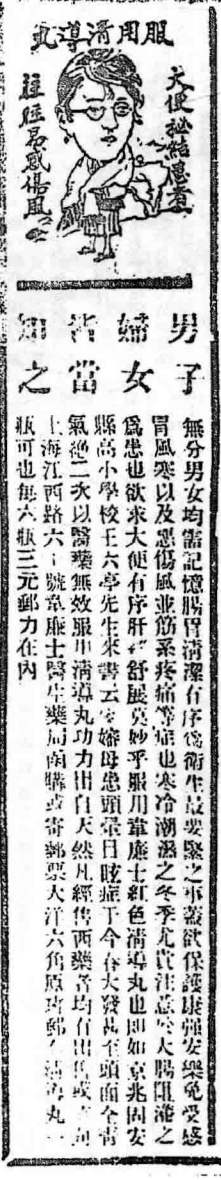 服用清導丸
大便秘結患者
往往易感傷風
男子婦女皆當知之
無分男女均需記憶腸胃清潔有序為衛生最要緊之事蓋欲保護康強安樂免受感
冒風寒以及患傷風並筋系疼痛等症也寒冷潮濕之冬季尤貴注意於大腸阻滯之
為患也欲求大便有序肝 舒展莫妙乎服用韋廉士紅色清導丸也即如京兆固安
縣高小學校王六亭先生來書云 嬸母患頭暈目眩症于今春大發甚至頭面全青
氣絕二次以醫藥無效服用清導丸功力出自天然凡經售西藥者均有出售或 向
上海江西路六十號韋廉士醫生藥局函購或寄郵票大洋六角原班郵 清導丸一
瓶可也每六瓶三元郵力在內